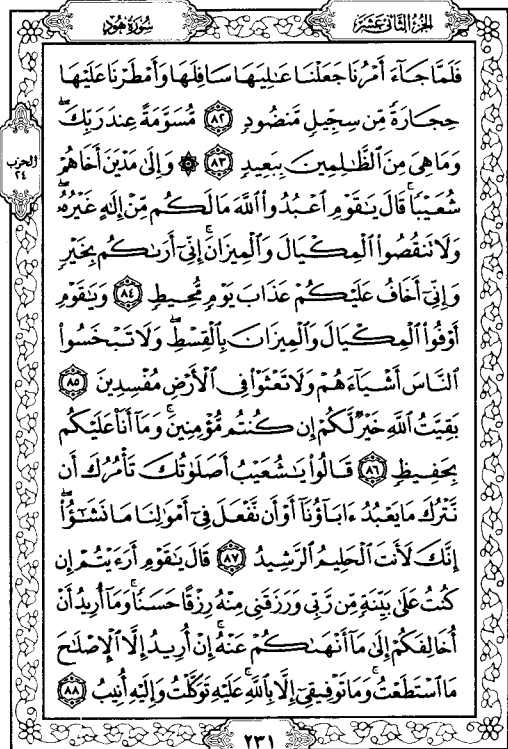 الجزء الثانى عشر
سورة هود
فَلَمَّا جَآءَ أَمْرُنَا جَعَلْنَا عَٰلِيَهَا سَافِلَهَا وَأَمْطَرْنَا عَلَيْهَا
حِجَارَةً مِّن سِجِّيلٍ مَّنضُودٍ ۝٨٢ مُّسَوَّمَةً عِندَ رَبِّكَۖ
وَمَا هِىَ مِنَ ٱلظَّٰلِمِينَ بِبَعِيدٍ ۝٨٣ ۞ وَإِلَىٰ مَدْيَنَ أَخَاهُمْ
الحزب ٢٤
شُعَيْبًاۚ قَالَ يَٰقَوْمِ ٱعْبُدُوا۟ ٱللَّهَ مَا لَكُم مِّنْ إِلَٰهٍ غَيْرُهُۥۖ
وَلَا تَنقُصُوا۟ ٱلْمِكْيَالَ وَٱلْمِيزَانَۚ إِنِّىٓ أَرَىٰكُم بِخَيْرٍ
وَإِنِّىٓ أَخَافُ عَلَيْكُمْ عَذَابَ يَوْمٍ مُّحِيطٍ ۝٨٤ وَيَٰقَوْمِ
أَوْفُوا۟ ٱلْمِكْيَالَ وَٱلْمِيزَانَ بِٱلْقِسْطِۖ وَلَا تَبْخَسُوا۟
ٱلنَّاسَ أَشْيَآءَهُمْ وَلَا تَعْثَوْا۟ فِى ٱلْأَرْضِ مُفْسِدِينَ ۝٨٥
بَقِيَّتُ ٱللَّهِ خَيْرٌ لَّكُمْ إِن كُنتُم مُّؤْمِنِينَۚ وَمَآ أَنَا۠ عَلَيْكُم
بِحَفِيظٍ ۝٨٦ قَالُوا۟ يَٰشُعَيْبُ أَصَلَوٰتُكَ تَأْمُرُكَ أَن
نَّتْرُكَ مَا يَعْبُدُ ءَابَآؤُنَآ أَوْ أَن نَّفْعَلَ فِىٓ أَمْوَٰلِنَا مَا نَشَٰٓؤُا۟ۖ
إِنَّكَ لَأَنتَ ٱلْحَلِيمُ ٱلرَّشِيدُ ۝٨٧ قَالَ يَٰقَوْمِ أَرَءَيْتُمْ إِن
كُنتُ عَلَىٰ بَيِّنَةٍ مِّن رَّبِّى وَرَزَقَنِى مِنْهُ رِزْقًا حَسَنًاۚ وَمَآ أُرِيدُ أَنْ
أُخَالِفَكُمْ إِلَىٰ مَآ أَنْهَىٰكُمْ عَنْهُۚ إِنْ أُرِيدُ إِلَّا ٱلْإِصْلَٰحَ
مَا ٱسْتَطَعْتُۚ وَمَا تَوْفِيقِىٓ إِلَّا بِٱللَّهِۚ عَلَيْهِ تَوَكَّلْتُ وَإِلَيْهِ أُنِيبُ ۝٨٨
٢٣١